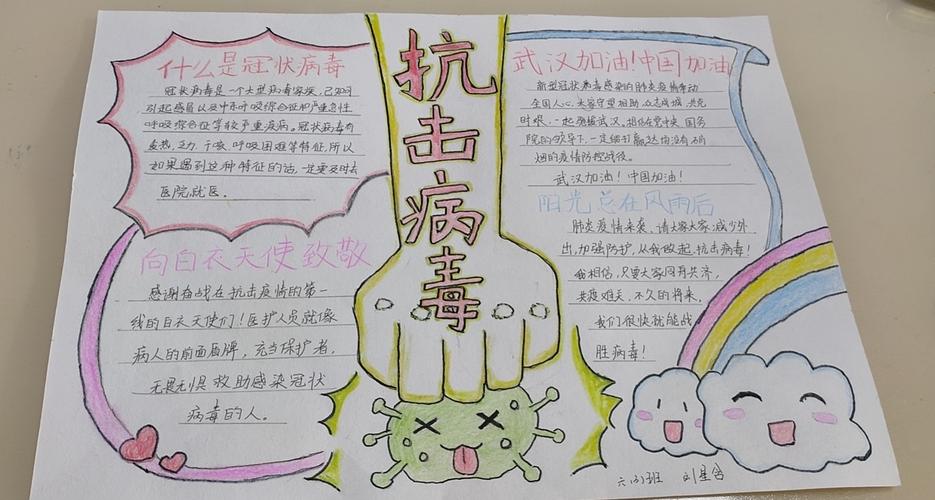 抗击病毒
什么是冠状病毒
冠状病毒是一个大型病毒家族，已知可
引起感冒以及中东呼吸综合征和严重急性
呼吸综合征等较严重疾病。冠状病毒有
发热、乏力、干咳、呼吸困难等特征，所以
如果遇到这种特征的话，一定要及时去
医院就医。
向白衣天使致敬
感谢奋战在抗击疫情的第一
线的白衣天使们！医护人员就像
病人的前面盾牌，充当保护者，
无畏无惧救助感染冠状
病毒的人。
武汉加油！中国加油
新型冠状病毒感染的肺炎疫情牵动
全国人心，大家守望相助、众志成城、共克
时艰，一起驰援武汉。相信在党中央、国务
院的领导下，一定能打赢这场没有硝
烟的疫情防控战役。
武汉加油！中国加油！
阳光总在风雨后
肺炎疫情来袭，请大家大家减少外
出，加强防护，从我做起，抗击病毒！
我相信，只要大家同舟共济，
共度难关，不久的将来，
我们很快就能战
胜病毒！
六 班 刘星